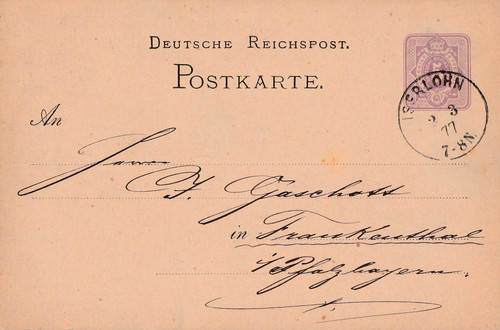 DEUTSCHE REICHSPOST.
POSTKARTE.
ISERLOHN
2 3
77
7-8N.
An
Herrn
J. Gaschott
in Frankenthal
i/Pfalzbayern.